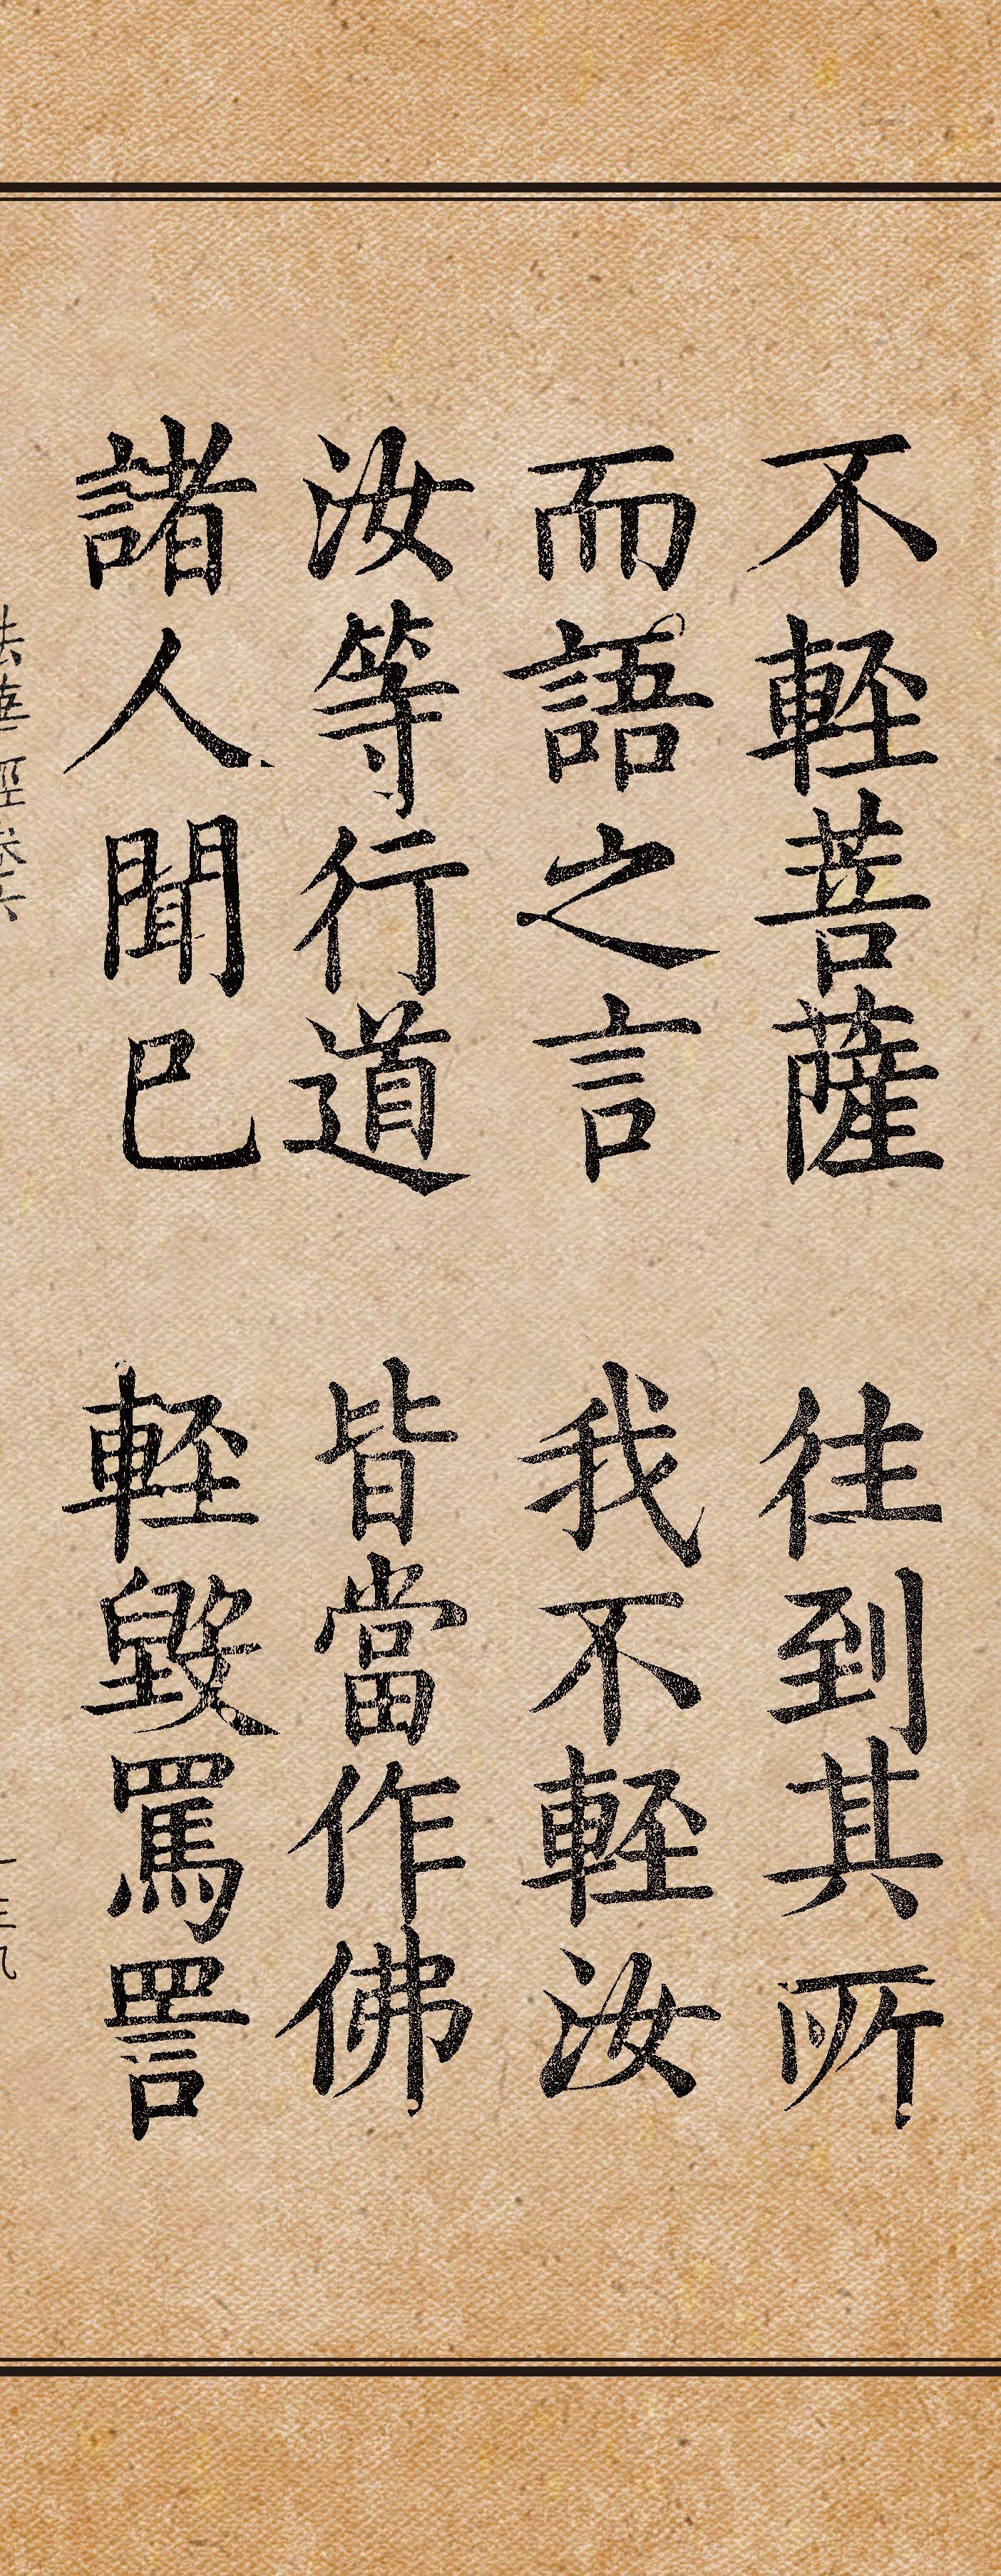 不輕菩薩 往到其所
而語之言 我不輕汝
汝等行道 皆當作佛
諸人聞已 輕毀罵詈
法華經卷六 一三九